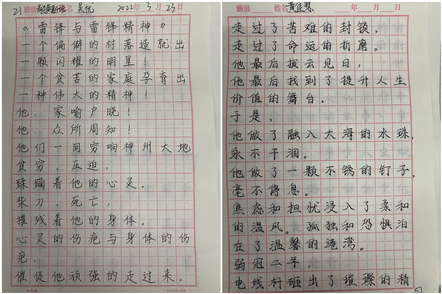 2022年3月23日
《雷锋与雷锋精神》
一个偏僻的村落造就出
一颗闪耀的明星！
一个贫苦的家庭孕育出
一种伟大的精神！
他，家喻户晓！
他，众所周知！
他们一同穷响神州大地
贫穷，压迫，
蹂躏着他的心灵。
柴刀，死亡，
摧残着他的身体。
心灵的伤疤与身体的伤
疤，
催促他顽强的走过来。
班级 姓名 年 月 日
走过了苦难的封锁，
走过了命运的折磨。
他最后拨云见日，
他最后找到了提升人生
价值的舞台。
于是，
他做了融入大海的水珠，
永不干涸。
他做了一颗不锈的钉子，
毫不停息。
焦虑和担忧浸入了柔和
的温风。孤独和恐惧泊
在了温馨的港湾。
弱冠二年，
电线杆砸出了璀璨的精